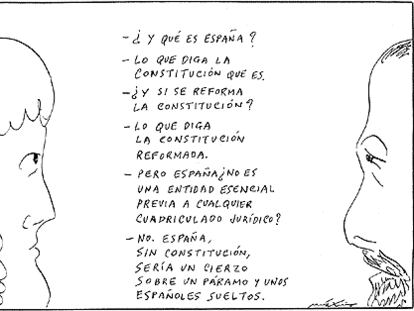 – ¿ Y QUÉ ES ESPAÑA ?
– LO QUE DIGA LA
CONSTITUCIÓN QUE ES.
– ¿ Y SI SE REFORMA
LA CONSTITUCIÓN ?
– LO QUE DIGA
LA CONSTITUCIÓN
REFORMADA.
– PERO ESPAÑA ¿ NO ES
UNA ENTIDAD ESENCIAL
PREVIA A CUALQUIER
CUADRICULADO JURÍDICO ?
– NO. ESPAÑA,
SIN CONSTITUCIÓN,
SERÍA UN CIERZO
SOBRE UN PÁRAMO Y UNOS
ESPAÑOLES SUELTOS.